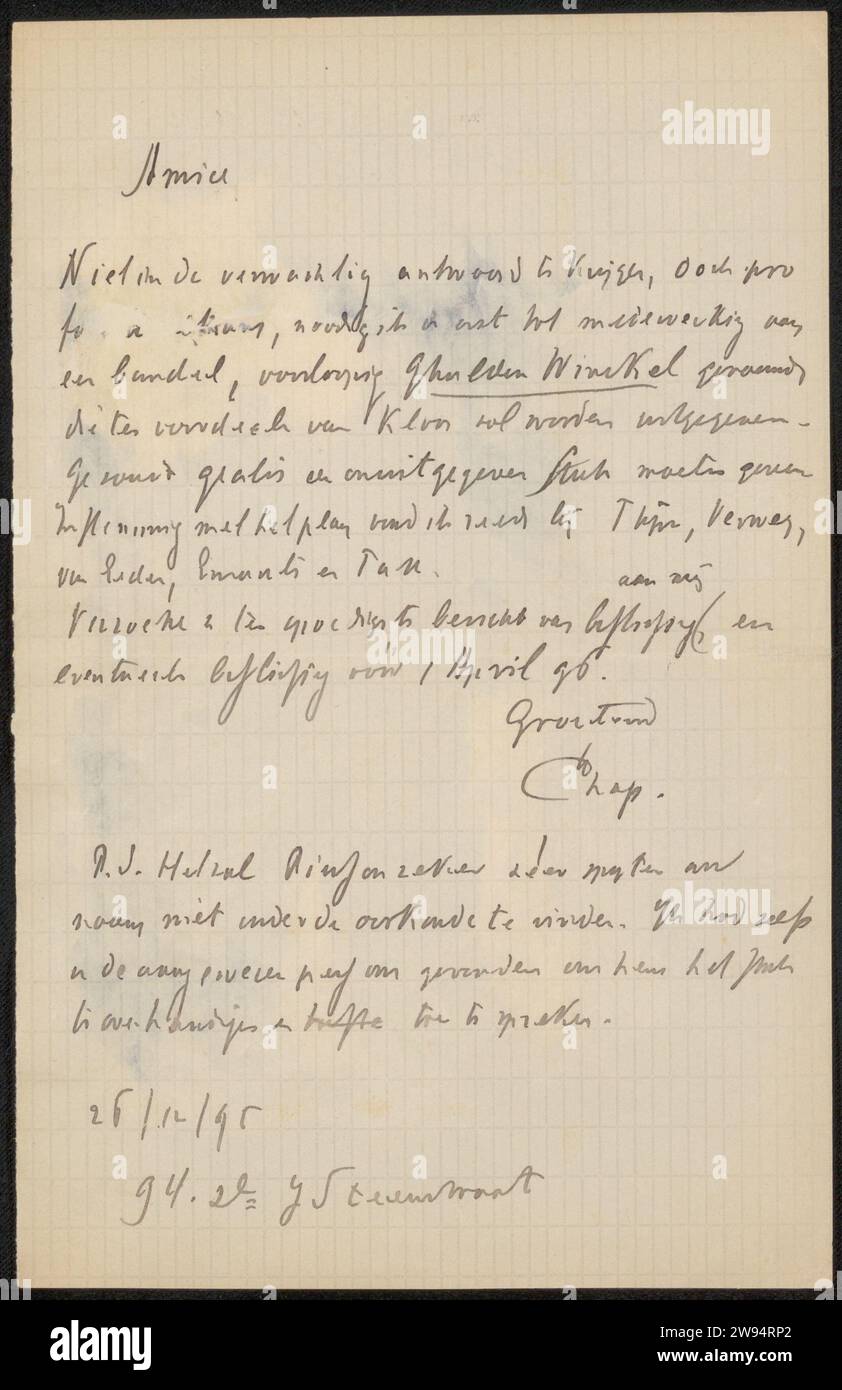 Amice
Niet in de verwachting antwoord te krijgen, doch pro
noodig ik u uit tot medewerking aan
een bundel, voorloopig Ghulden Winckel genaamd
die ten voordeele van Kloos zal worden uitgegeven.
Ge zoudt gratis een onuitgegeven stuk moeten geven
Instemming met het plan vond ik reeds bij Thijm, Verwey,
van Eeden, Emants en Tak.
aan mij
Verzoeke u ten spoedigste bericht van beslissing, en
eventueele beslissing vóór 1 April 96.
Groetend
Chap.
P.S. Het zal zeker zéér spijten uw
naam niet onder de oorkonde te vinden. Ik had zelf
u de aangewezen persoon gevonden om hem het stuk
te overhandigen en toe te spreken.
26/12/95
94. 2e J Steenstraat
alamy
alamy
alamy
Image ID: 2W94RP2
www.alamy.com